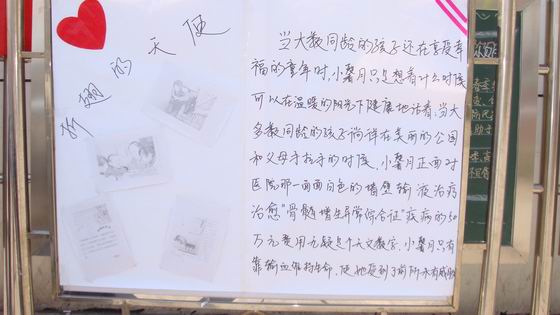 折翅的天使
当大数同龄的孩子还在享受幸
福的童年时,小馨月只是想着什么时候
可以在温暖的阳光下健康地活着;当大
多数同龄的孩子徜徉在美丽的公园
和父母手拉手的时候,小馨月正面对
医院那一面面白色的墙壁输液治疗
治愈"骨髓增生异常综合证"疾病的50
万元费用无疑是个天文数字.小馨月只有
靠输血维持生命,使她受到了前所未有威胁